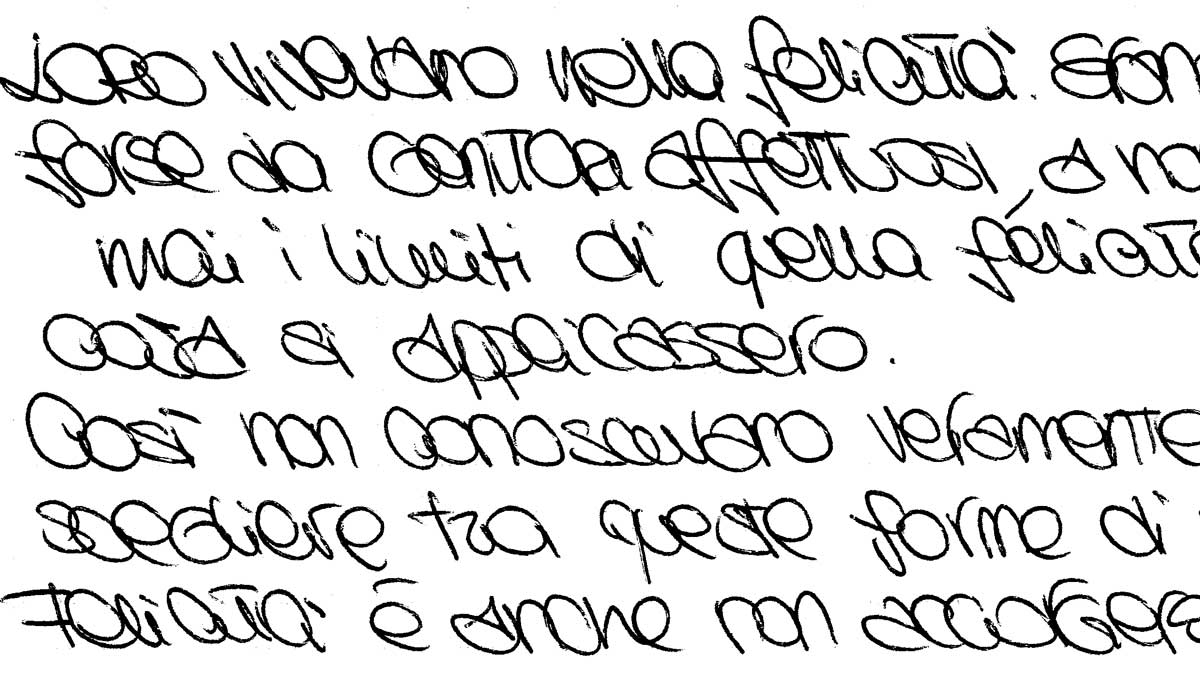 Loro vivevano nella felicità. Eran
forse da contorni affettuosi, a no
mai i limiti di quella felicità
città si applicassero.
Così non conoscevano veramente
scegliere tra queste forme di
Felicità è anche non accorgers